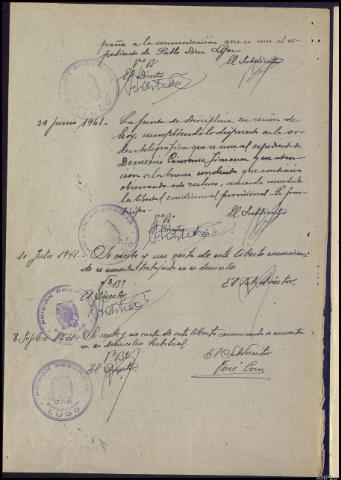 paña a la comunicación que se une al ex-
pediente de Pablo Díaz López
Vº Bº
El Director
El Subdirector
29 Junio 1941.- La Junta de Disciplina, en reunión de
hoy, cumpliendo lo dispuesto en la or-
den telegráfica que se une al expediente de
Demetrio Jimenez y en aten-
ción a la buena conducta que continúa
observando este recluso, acuerda concederle
la libertad condicional provisional.
Vº Bº
El Director
El Subdirector
10 Julio 1941.- Se recibe y une carta de este liberto comunican-
do se encuentra trabajando en su domicilio
Vº Bº
El Director
El Subdirector
8 Sepbre 1941.- Se recibe y une carta de este liberto comunicando se encuentra
en su domicilio habitual.
Vº Bº
El Director
El Subdirector
José
PRISIÓN PROVINCIAL
LUGO